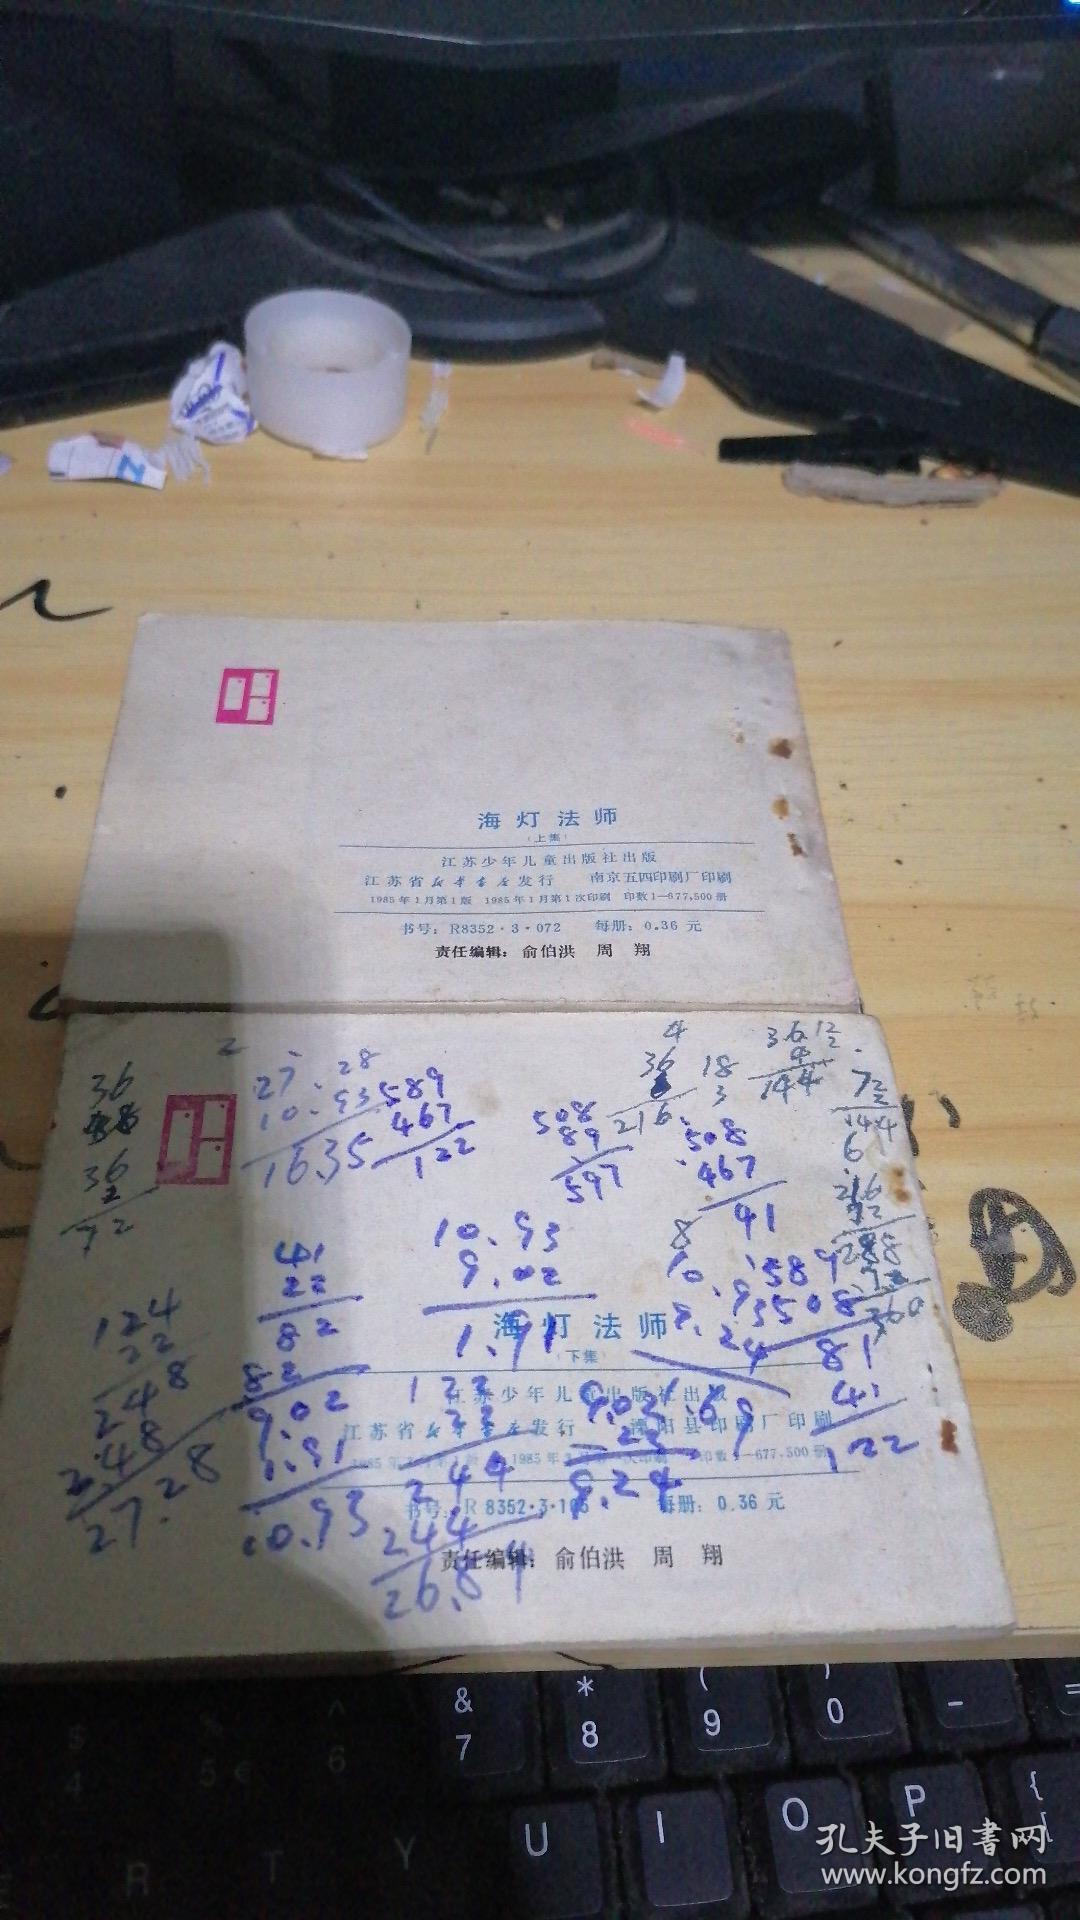 海灯法师
(上集)
江苏少年儿童出版社出版
江苏省新华书店发行 南京五四印刷厂印刷
1985年1月第1版 1985年1月第1次印刷 印数1—677,500册
书号:R8352·3·072 每册:0.36元
责任编辑:俞伯洪 周翔
36
36
2
72
27.28
10.93
16.35
589
467
122
508
89
597
4
36
6
216
18
3
508
467
41
144
72
2
144
6
216
72
288
72
360
41
22
82
82
9.02
1.91
10.93
10.93
9.02
1.91
589
508
81
41
122
124
22
248
248
27.28
122
22
244
244
26.84
9.02
22
9.24
海灯法师
(下集)
江苏少年儿童出版社出版
江苏省新华书店发行 溧阳县印刷厂印刷
677,500册
书号:R8352·3·1 每册:0.36元
责任编辑:俞伯洪 周翔
& 7
* 8
( 9
) 0
-
=
U
I
O
P
{ [
R
T
Y
孔夫子旧书网
www.kongfz.com